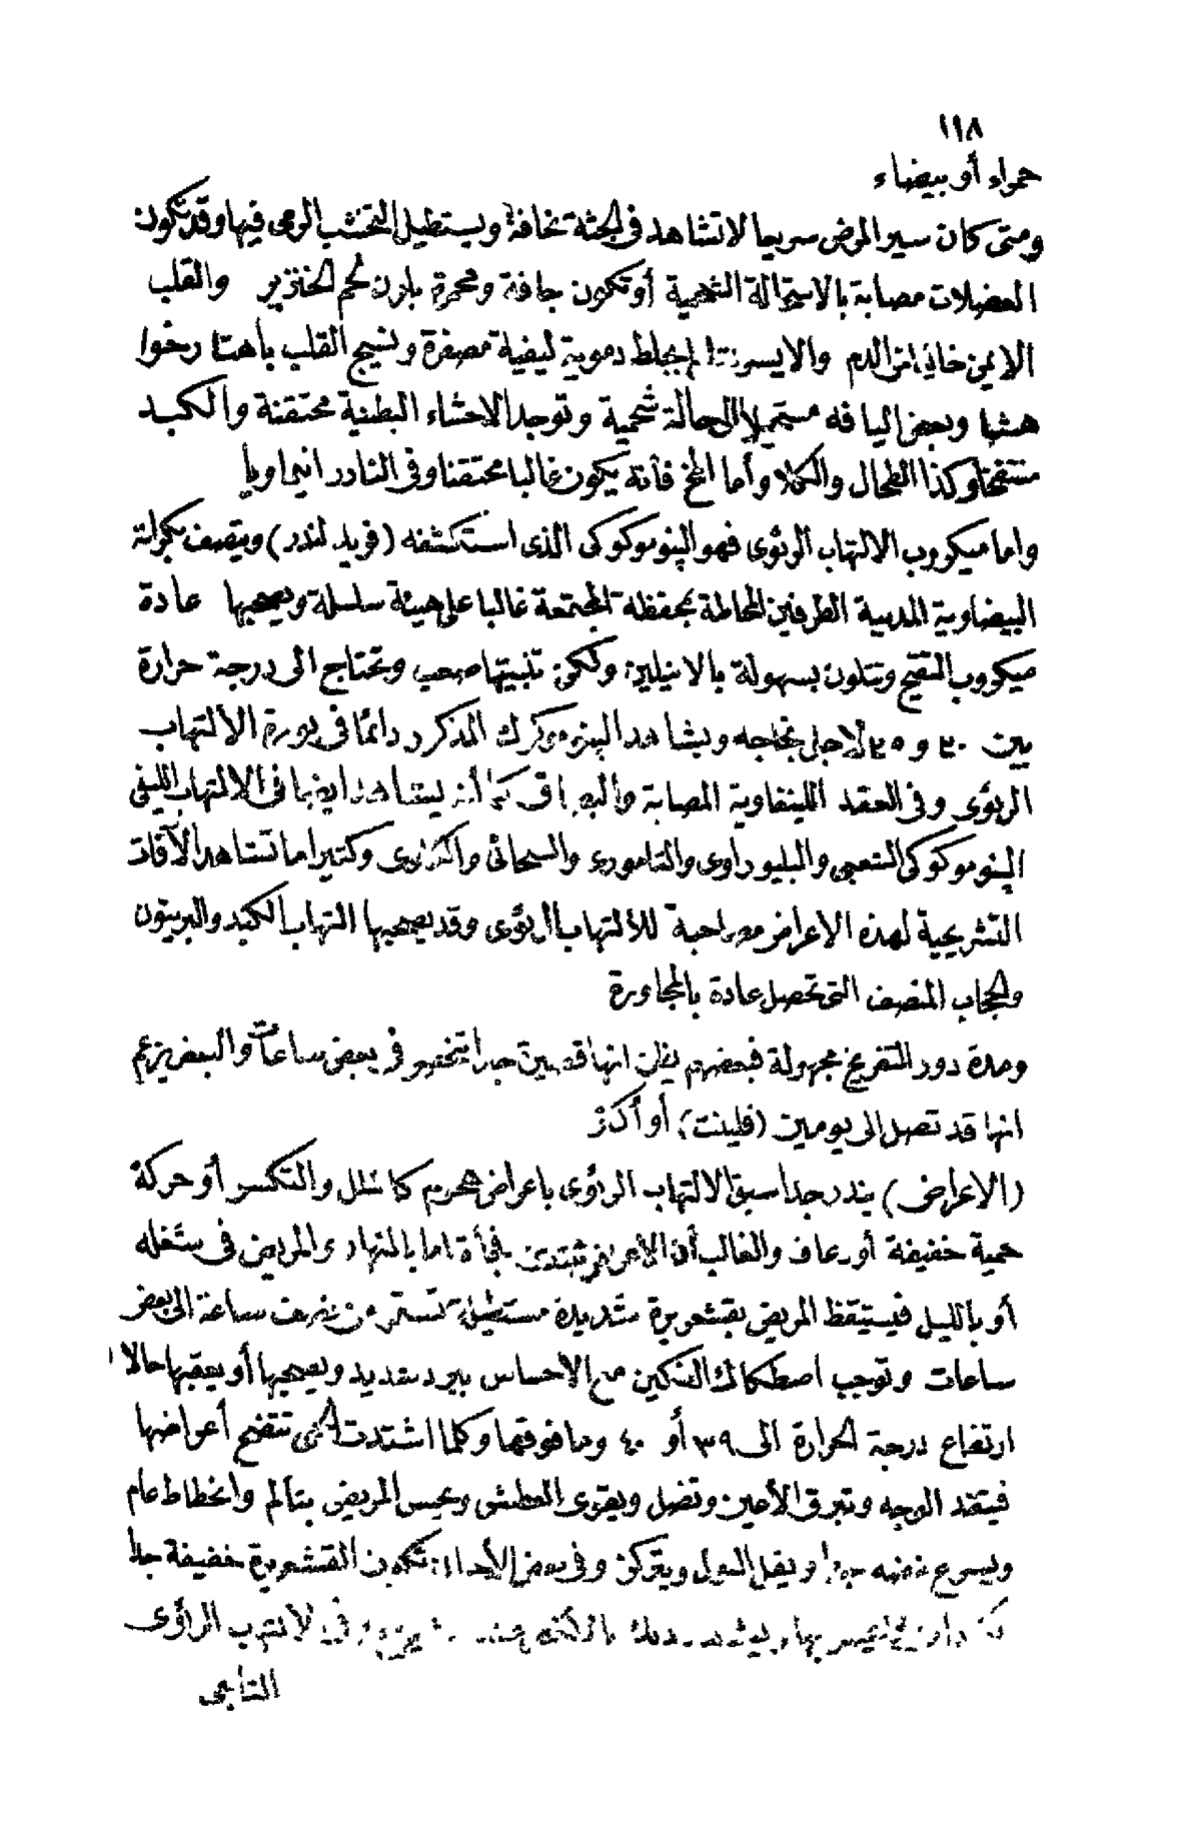 ١١٨
حمراء أو بيضاء
ومتى كان سير المرض سريعا لا تشاهد فى الجثة نحافة ويستطيل التخشب الرمى فيها وقد تكون
العضلات مصابة بالاستحالة الشحمية أو تكون جافة ومحمرة بلون لحم الخنزير والقلب
الايمن خاليا من الدم والايسر دموية ليفية مصفرة ونسيج القلب باهتا رخوا
هشا وبعض اليافه مستحيلا الى حالة شحمية وتوجد الاحشاء البطنية محتقنة والكبد
منتفخا وكذا الطحال والكلا وأما المخ فأنه يكون غالبا محتقنا وفى النادر انيماويا
واما ميكروب الالتهاب الرئوى فهو البنوموكوكى الذى استكشفه (فريد لندر) ويتصف بكراته
البيضاوية المدببة الطرفين المحاطة بمحفظة المجتمعة غالبا على هيئة سلسلة ويصحبها عادة
ميكروب التقيح وتتلون بسهولة بالانيلين ولكن تثبيتها صعب وتحتاج الى درجة حرارة
بين ٣٠ و ٣٥ لاجل نجاحه ويشاهد البنوموكوك المذكور دائما فى بورة الالتهاب
الرئوى وفى العقد اللينفاوية المصابة والبصاق كما أنه يشاهد ايضا فى الالتهاب الليفى
البنوموكوكى الشعبى والبليوراوى والتامورى والسحائى والكلوى وكثيرا ما تشاهد الآفات
التشريحية لهذه الاعراض مصاحبة للألتهاب الرئوى وقد يصحبها التهاب الكبد والبريتون
والحجاب المنصف التى تحصل عادة بالمجاورة
ومدة دور التفريخ مجهولة فبعضهم يظن انها قصيرة جدا تنحصر فى بعض ساعات والبعض يزعم
انها قد تصل الى يومين (فلينت) أو أكثر
(الاعراض) يندر جدا سبق الالتهاب الرئوى باعراض هجوم كالشلل والتكسر أو حركة
حمية خفيفة أو رعاف والغالب أن الاعراض تبتدئ فجأة اما بالنهار والمريض فى شغله
أو بالليل فيستيقظ المريض بقشعريرة شديدة مستطيلة تستمر من نصف ساعة الى بعض
ساعات وتوجب اصطكاك الفكين مع الاحساس ببرد شديد ويصحبها أو يعقبها حالا
ارتفاع درجة الحرارة الى ٣٩ أو ٤٠ وما فوقها وكلما اشتدت الحمى تتضح أعراضها
فيتقد الوجه وتبرق الأعين وتضل ويقوى العطش ويحس المريض بتألم وانحطاط عام
ويسرع نبضه جدا ويقل البول ويتركز وفى بعض الأحيان تكون القشعريرة خفيفة جدا
الرئوى
التابعى